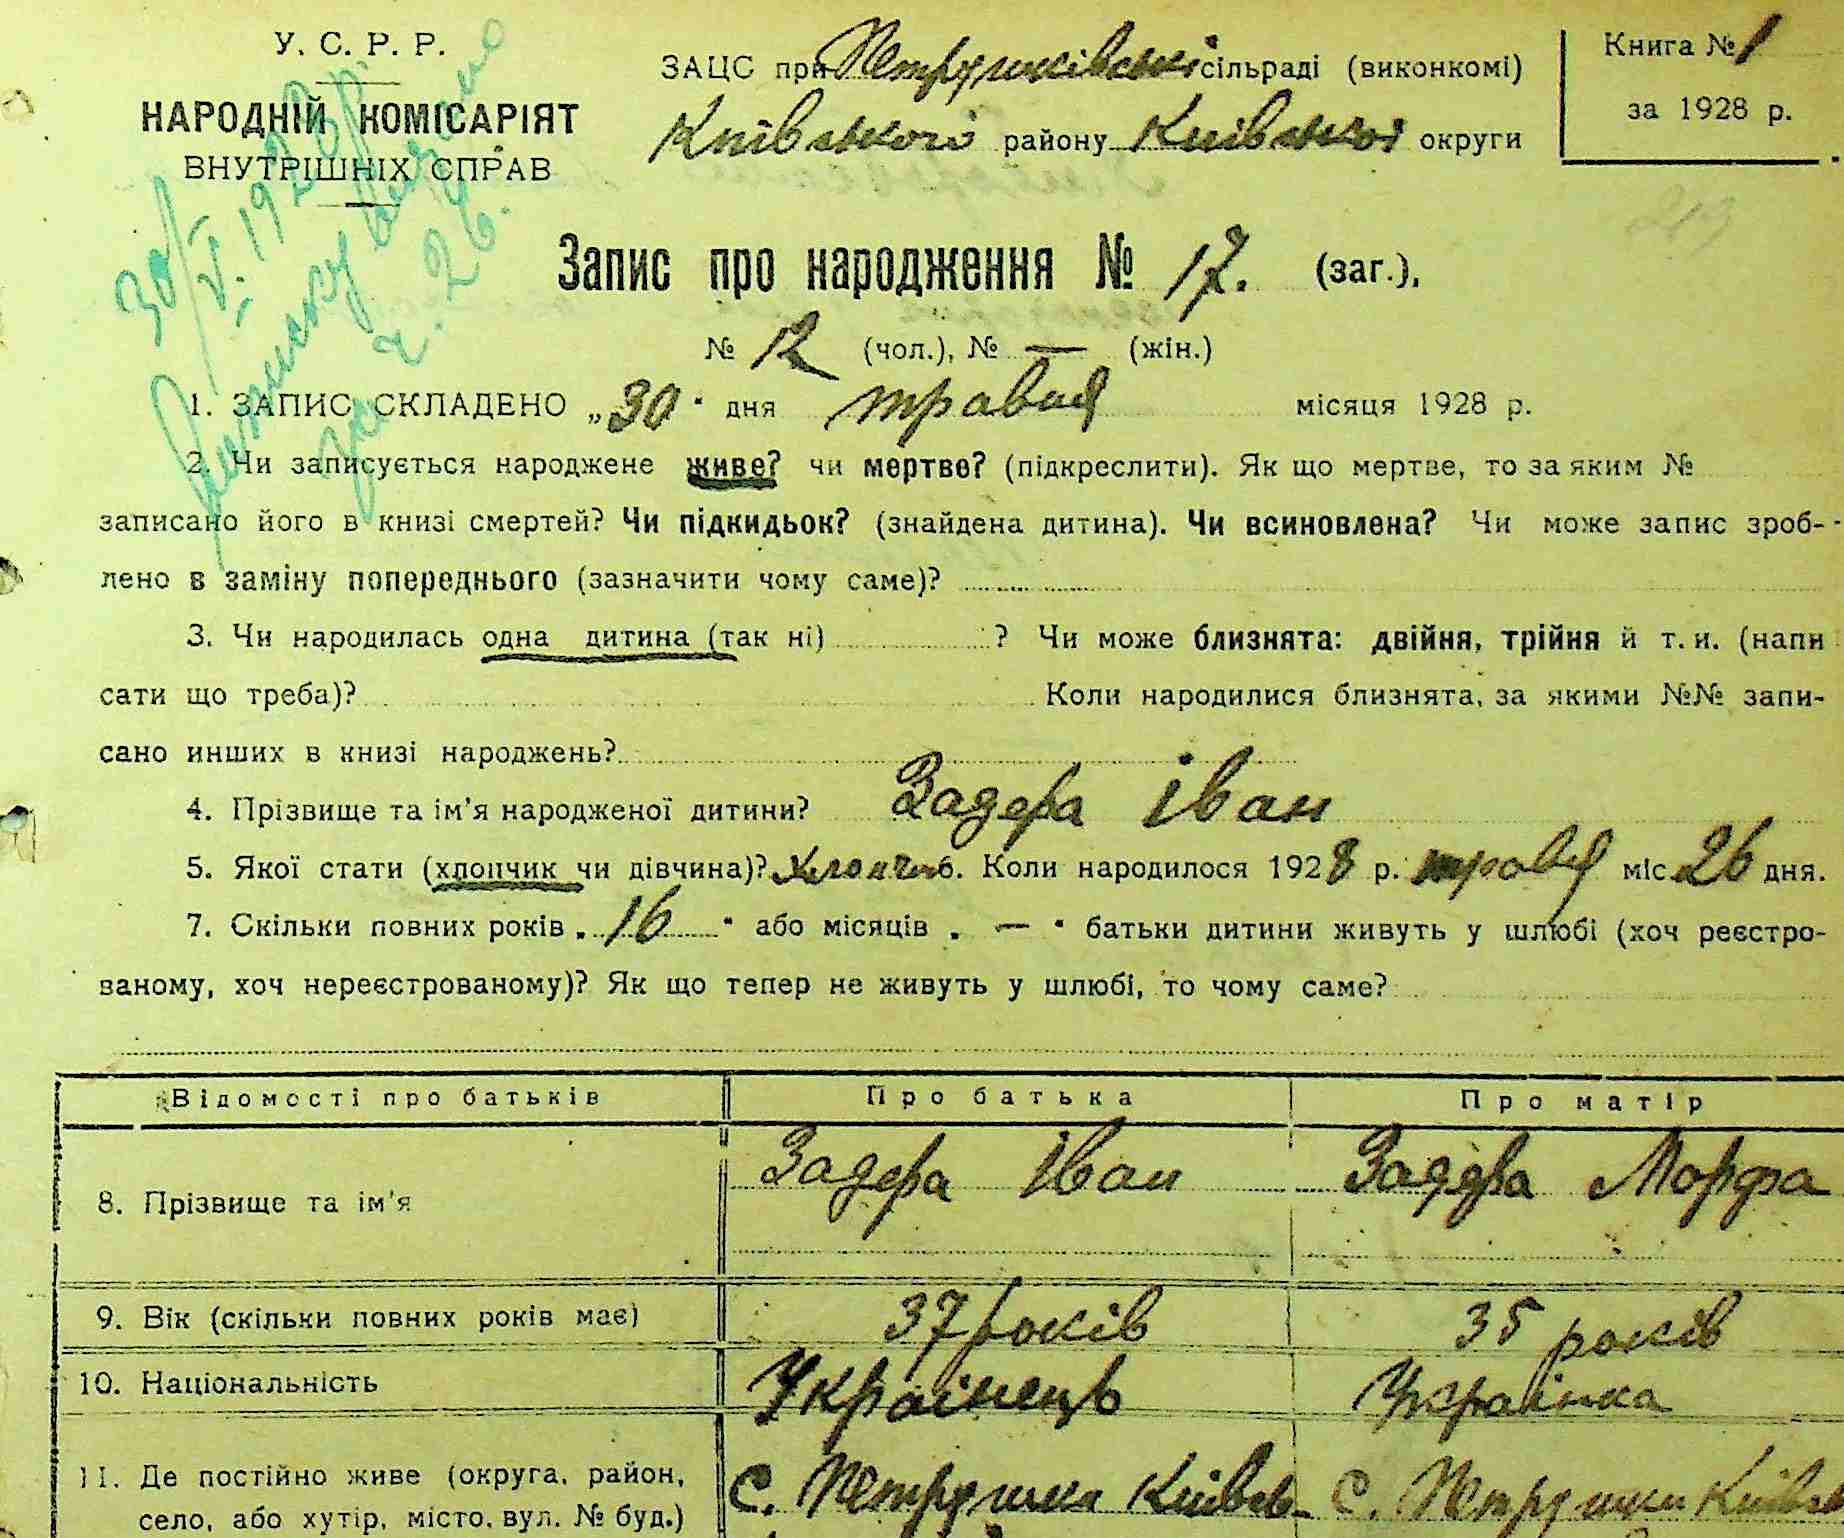 У. С. Р. Р.
НАРОДНІЙ КОМІСАРІЯТ
ВНУТРІШНІХ СПРАВ
30/V. 1928 р.
Виписку видано
за ч. 26.
ЗАЦС при Петрушківській сільраді (виконкомі)
Київського району Київської округи
Книга № 1
за 1928 р.
213
Запис про народження № 17. (заг.),
№ 12 (чол.), № — (жін.)
1. ЗАПИС СКЛАДЕНО „30" дня травня місяця 1928 р.
2. Чи записується народжене живе? чи мертве? (підкреслити). Як що мертве, то за яким №
записано його в книзі смертей? Чи підкидьок? (знайдена дитина). Чи всиновлена? Чи може запис зроб-
лено в заміну попереднього (зазначити чому саме)?
3. Чи народилась одна дитина (так ні) ? Чи може близнята: двійня, трійня й т. и. (напи
сати що треба)? Коли народилися близнята, за якими №№ запи-
сано инших в книзі народжень?
4. Прізвище та ім'я народженої дитини? Задера Іван
5. Якої стати (хлопчик чи дівчина)? Хлопчик 6. Коли народилося 1928 р. травня міс. 26 дня.
7. Скільки повних років „16" або місяців „—" батьки дитини живуть у шлюбі (хоч реєстро-
ваному, хоч нереєстрованому)? Як що тепер не живуть у шлюбі, то чому саме?
Відомості про батьків Про батька Про матір
8. Прізвище та ім'я Задера Іван Задера Морфа
9. Вік (скільки повних років має) 37 років 35 років
10. Національність Українець Українка
11. Де постійно живе (округа, район, с. Петрушки Київсь- с. Петрушки Київсь
село, або хутір, місто, вул. № буд.)